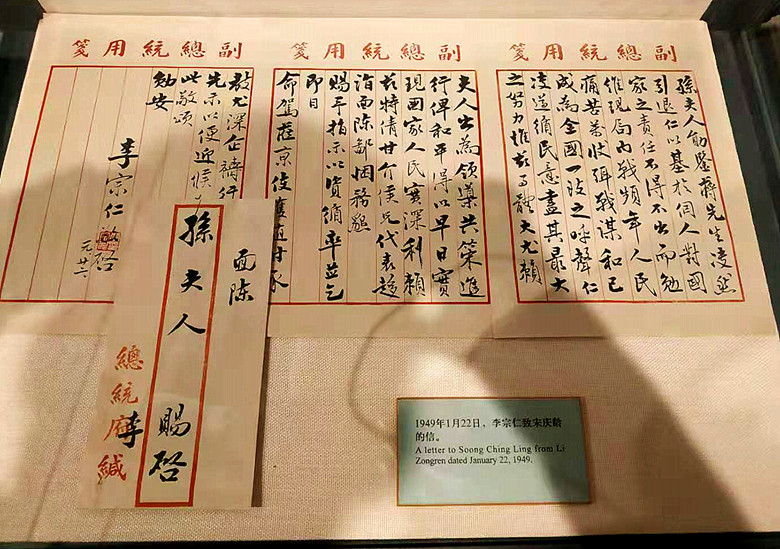 副總統用箋
孫夫人勛鑒蔣先生
引退仁以基於個人對國
家之責任不得不出而勉
維現局內戰頻年人民
痛苦萬狀弭戰謀和已
成為全國一致之呼聲仁
遵循民意盡其最大
之努力惟茲事體大尤賴
副總統用箋
夫人出為領導共策進
行俾和平得以早日實
現國家人民實深利賴
茲特情甘介侯兄代表趨
詣面陳鄙悃務懇
賜予指示以資循率並乞
即日
命駕蒞京俾獲隨時承
副總統用箋
教尤深企禱行
先示以便迎候
此敬頌
勛安
李宗仁 啓
元廿二
面陳
孫夫人 賜啓
總統府李緘
1949年1月22日，李宗仁致宋庆龄
的信。
A letter to Soong Ching Ling from Li
Zongren dated January 22, 1949.